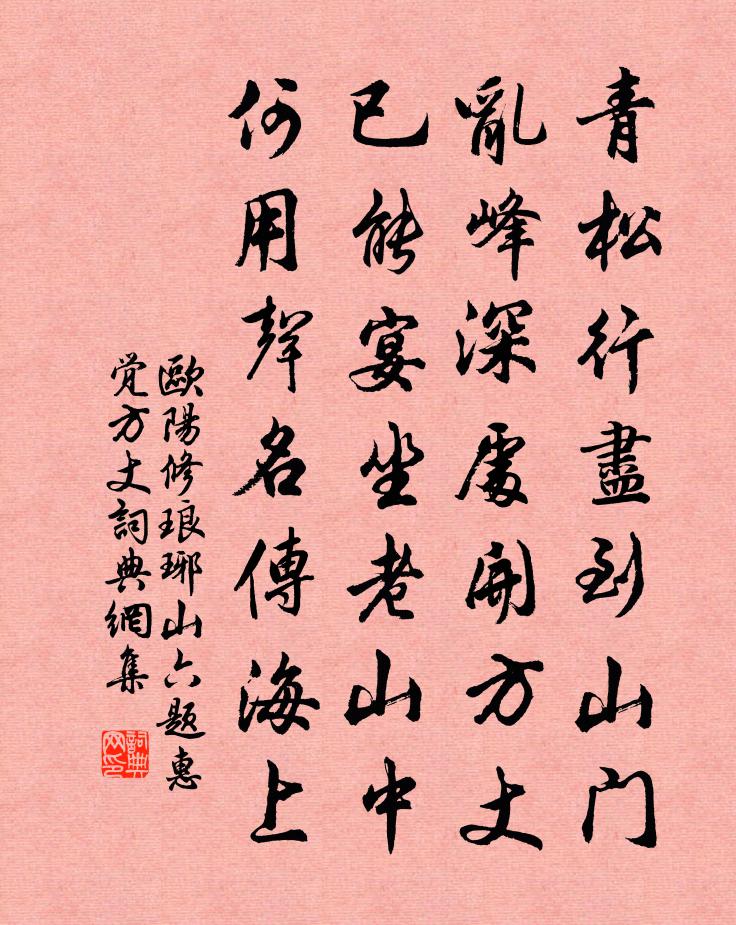 青松行盡到山门
亂峰深處開方丈
已能宴坐老山中
何用聲名傳海上
歐陽修琅琊山六题惠
觉方丈詞典網集
詞典网印